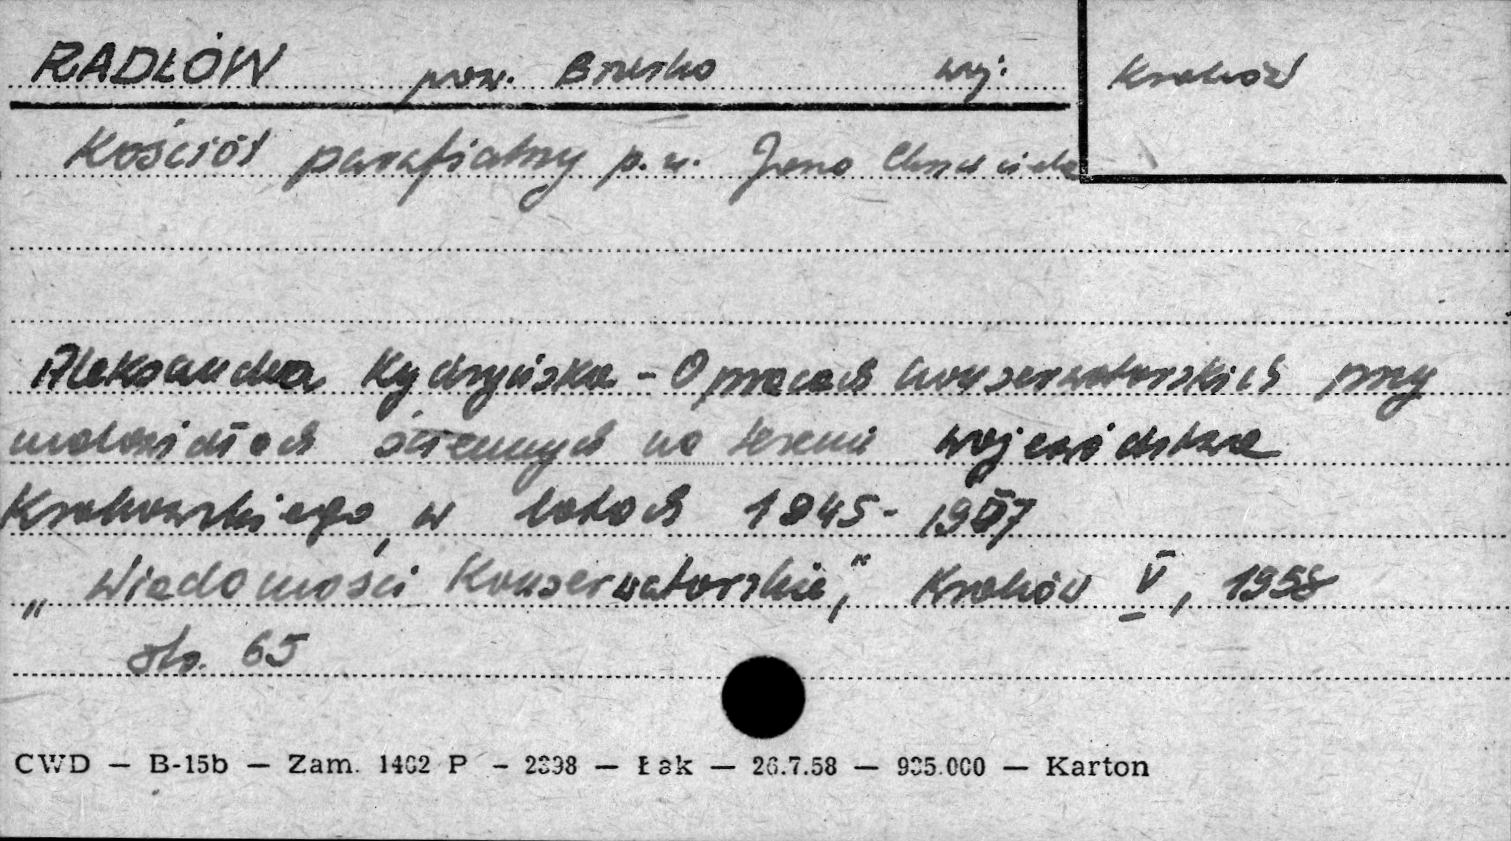 RADŁÓW pow. Brzesko woj. Kraków
Kościół parafialny p.w. Jana Chrzciciela
Aleksandra Kydryńska - O pracach konserwatorskich przy
malowidłach ściennych na terenie województwa
Krakowskiego w latach 1945-1957
„Wiadomości Konserwatorskie", Kraków V, 1958
str. 65
CWD — B-15b — Zam. 1402 P - 2398 — Łak — 26.7.58 — 935.000 — Karton